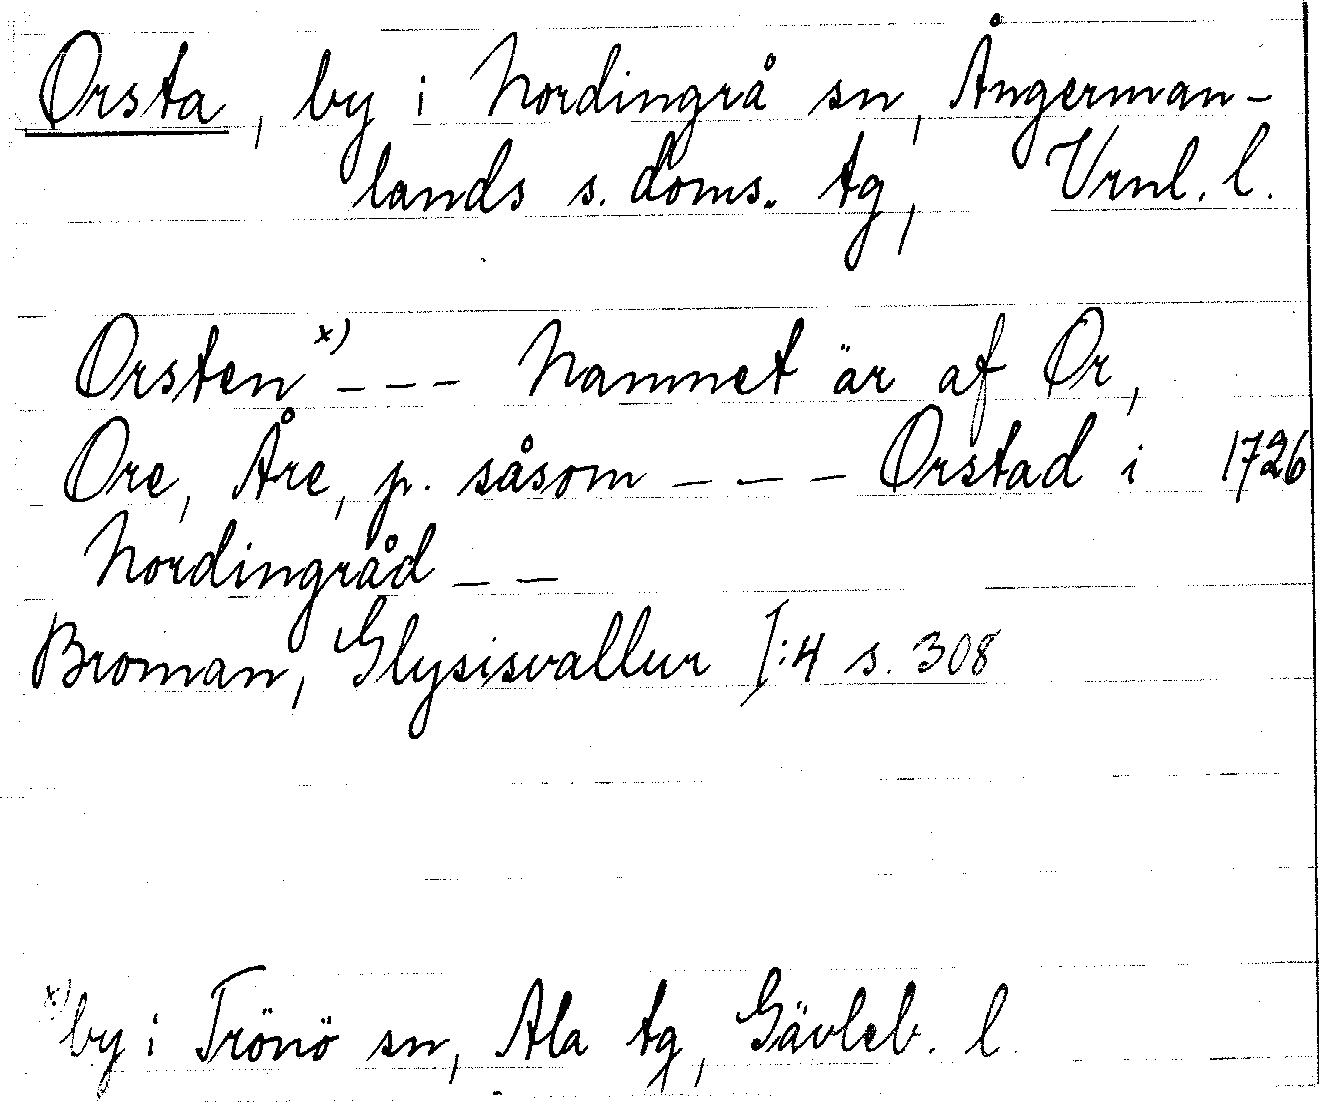 Orsta, by i Nordingrå sn, Ångerman-
lands s. doms. tg, Vrnl. l.
Orsten x) - - - Namnet är af Or,
Ore, Åre, p. såsom - - - Orstad i 1726
Nordingråd - -
Broman, Glysisvallur I:4 s. 308
x) by i Trönö sn, Ala tg, Gävleb. l.